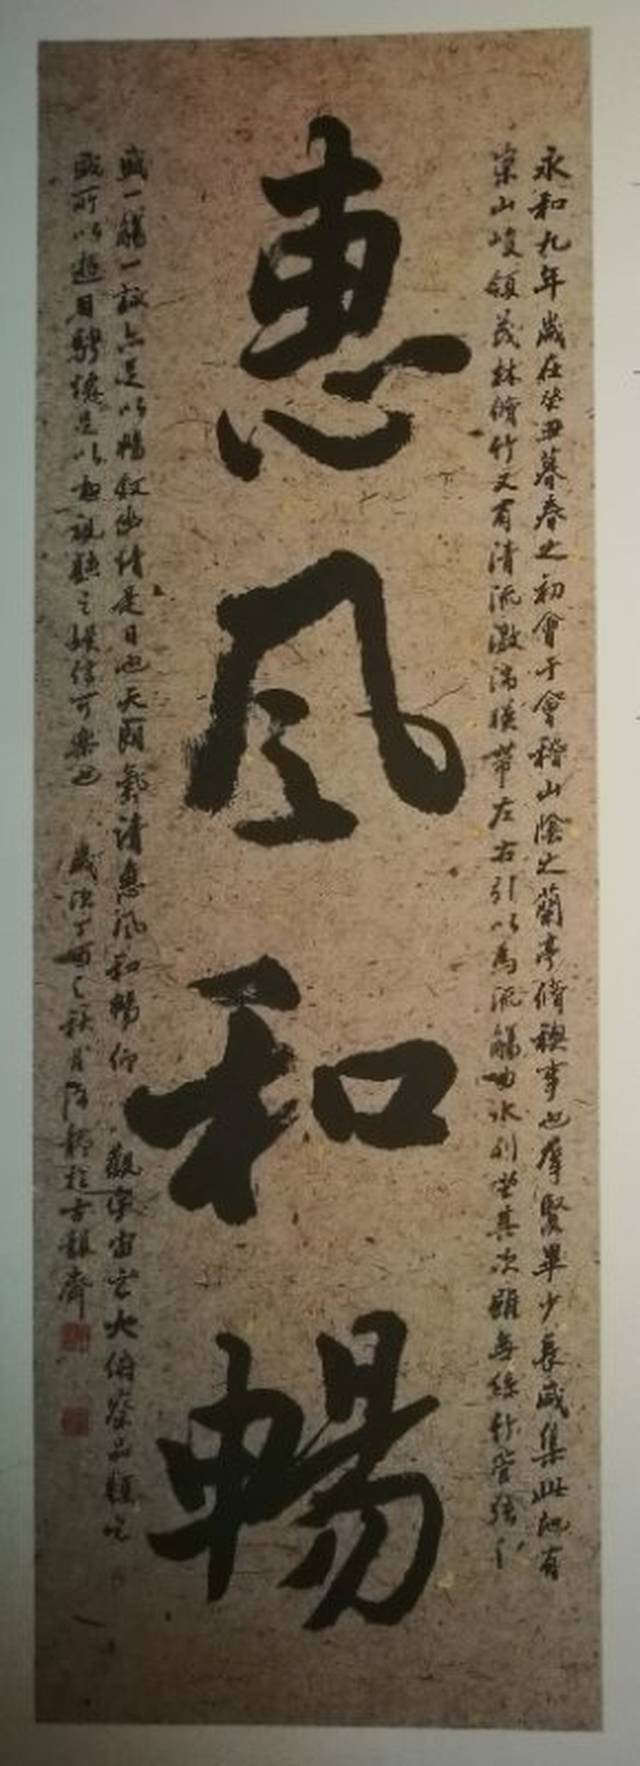 永和九年歲在癸丑暮春之初會于會稽山陰之蘭亭脩稧事也羣賢畢少長咸集此地有
崇山峻領茂林脩竹又有清流激湍暎帶左右引以為流觴曲水列坐其次雖無絲竹管弦之
惠風和暢
盛一觴一詠亦足以暢敘幽情是日也天朗氣清惠風和暢仰觀宇宙之大俯察品類之
盛所以遊目騁懷足以極視聽之娛信可樂也 歲次丁酉之秋月於古韻齋